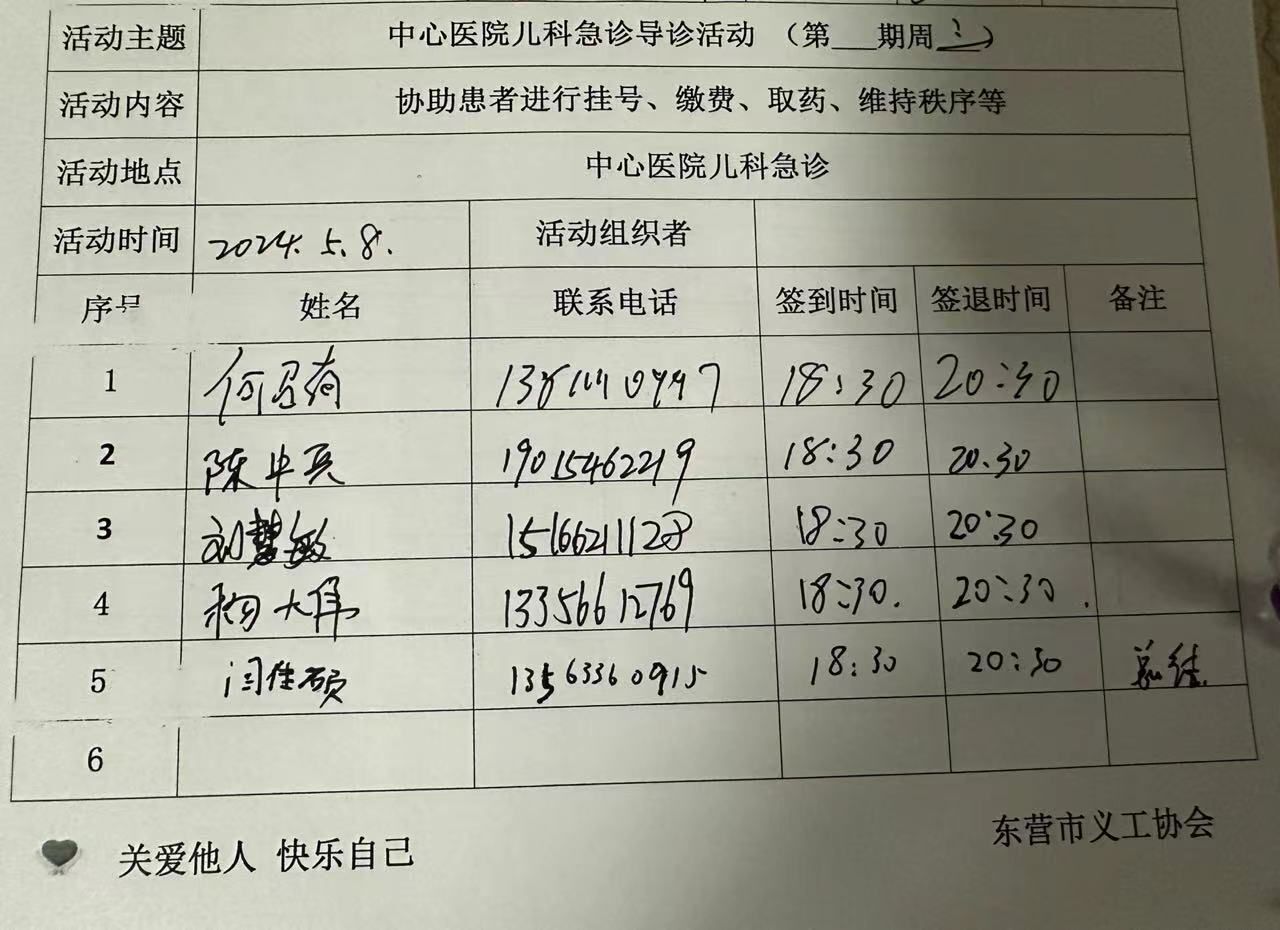 活动主题 中心医院儿科急诊导诊活动 (第___期周三)
活动内容 协助患者进行挂号、缴费、取药、维持秩序等
活动地点 中心医院儿科急诊
活动时间 2024.5.8. 活动组织者
序号 姓名 联系电话 签到时间 签退时间 备注
1 18:30 20:30
2 陈中兵 19015462219 18:30 20.30
3 刘慧敏 15166211128 18:30 20:30
4 杨大伟 13356612769 18:30. 20:30.
5 闫佳硕 13563360915 18:30 20:30 总结
6
关爱他人 快乐自己
东营市义工协会